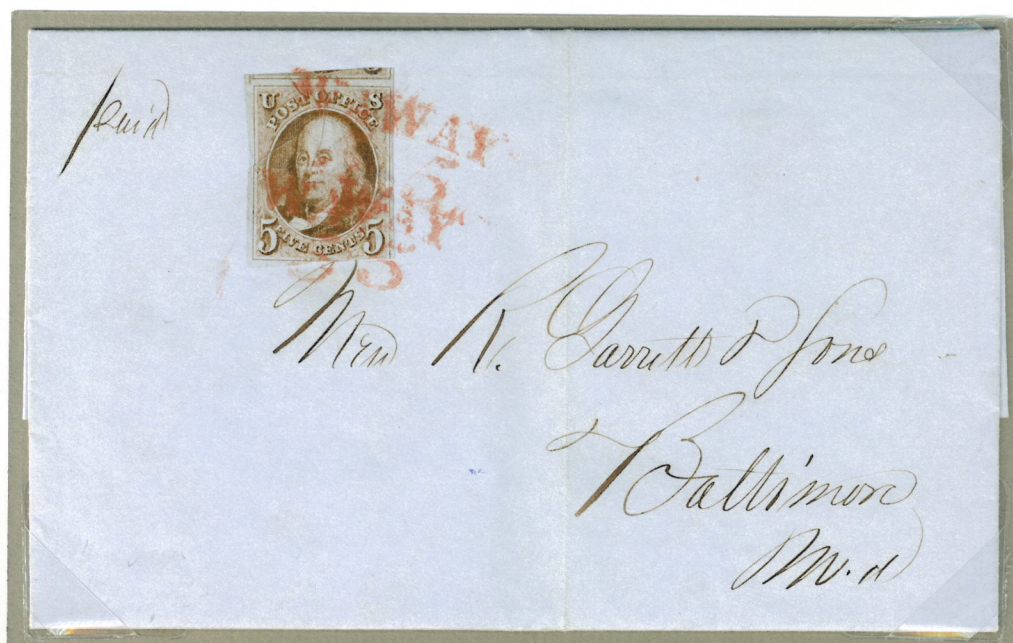 paid
U S
POST OFFICE
WAY
5 FIVE CENTS 5
Mess R. Garrett & Sons
Baltimore
Md